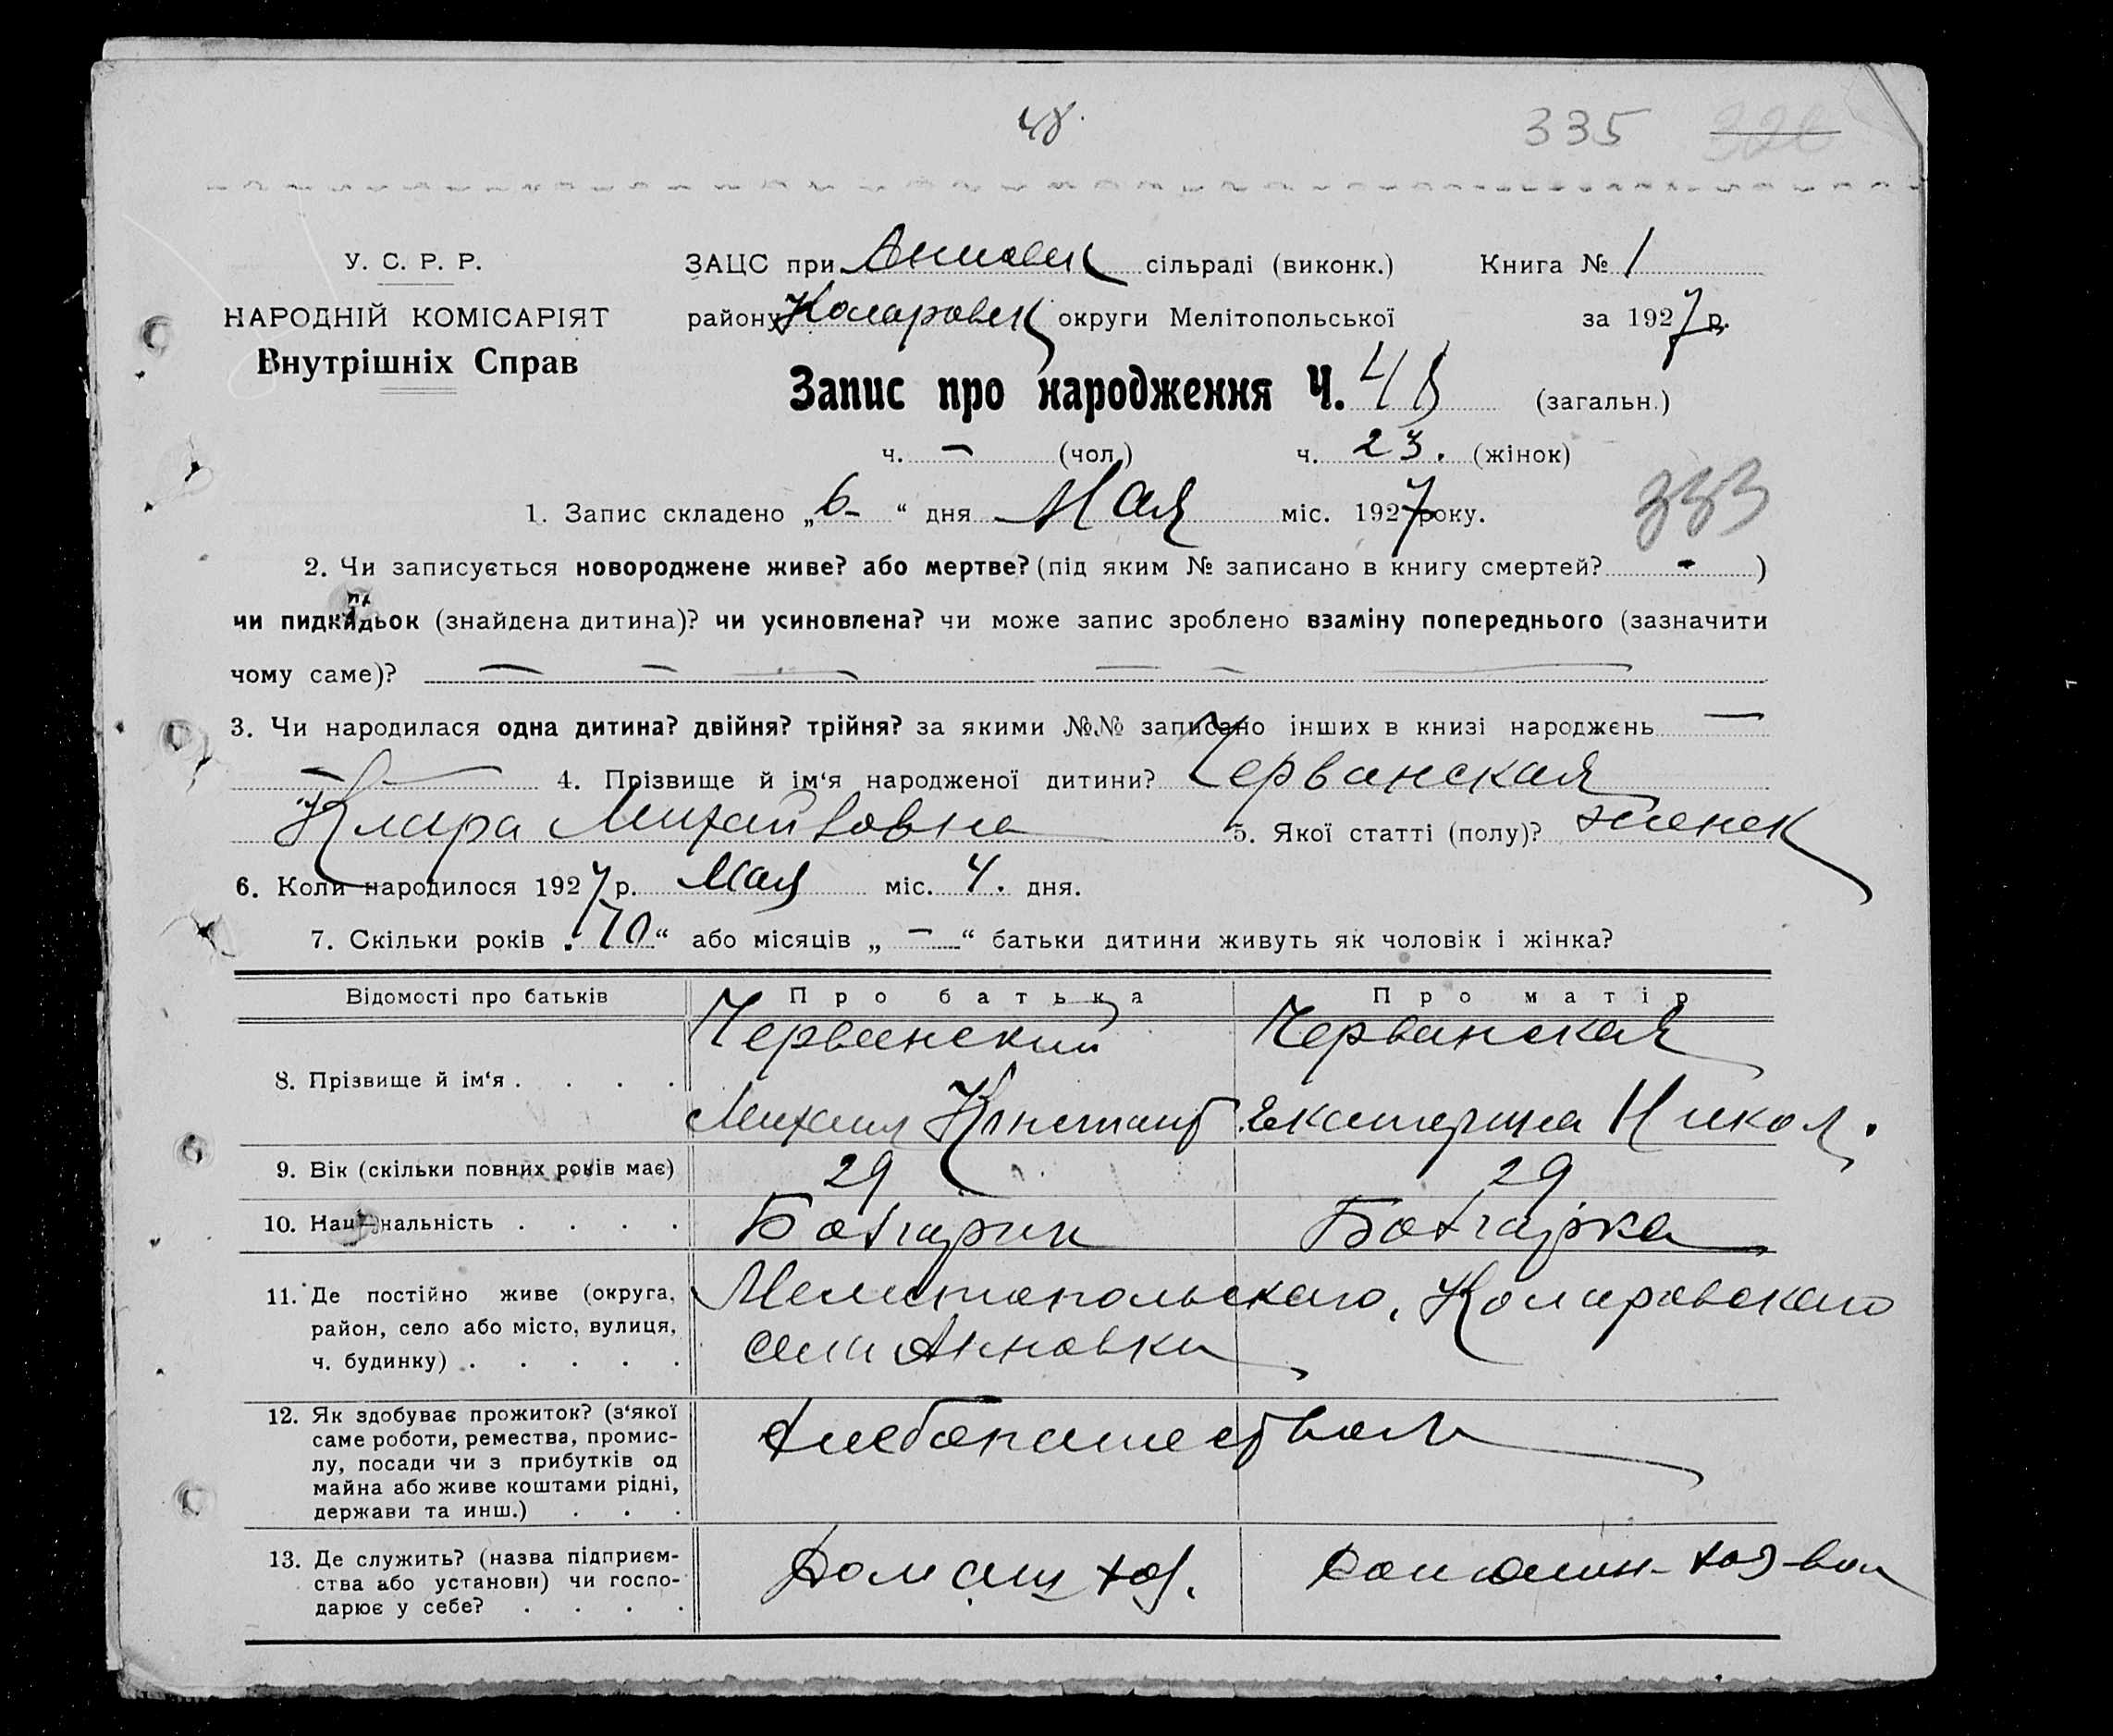 48.
335
У. С. Р. Р.
НАРОДНІЙ КОМІСАРІЯТ
Внутрішніх Справ
ЗАЦС при сільраді (виконк.) Книга № 1
району Коларовск округи Мелітопольської за 1927 р.
Запис про народження Ч. 48 (загальн.)
ч. — (чол.) ч. 23. (жінок)
1. Запис складено „6-“ дня Мая міс. 1927 року.
333
2. Чи записується новороджене живе? або мертве? (під яким № записано в книгу смертей? - )
чи пидкидьок (знайдена дитина)? чи усиновлена? чи може запис зроблено взаміну попереднього (зазначити
чому саме)? — — — — — —
3. Чи народилася одна дитина? двійня? трійня? за якими №№ записано інших в книзі народжень —
— 4. Прізвище й ім‘я народженої дитини? Черванская
Клара Михайловна 5. Якої статті (полу)? женск
6. Коли народилося 1927 р. Мая міс. 4. дня.
7. Скільки років „10“ або місяців „ — “ батьки дитини живуть як чоловік і жінка?
Відомості про батьків Про батька Про матір
8. Прізвище й ім‘я . . . . Черванский Черванская
Михаил Констант Екатерина Никол.
9. Вік (скільки повних років має) 29 29
10. Національність . . . . Болгарин Болгарка
11. Де постійно живе (округа, район, село або місто, вулиця, ч. будинку) . . . . .
Мелитопольского, Коларовского
села Анновки
12. Як здобуває прожиток? (з‘якої саме роботи, ремества, промислу, посади чи з прибутків од майна або живе коштами рідні, держави та инш.) . . .
Хлебопашеством
13. Де служить? (назва підприємства або установи) чи господарює у себе? . . . .
Домаш хоз. Домашн- хоз-вом